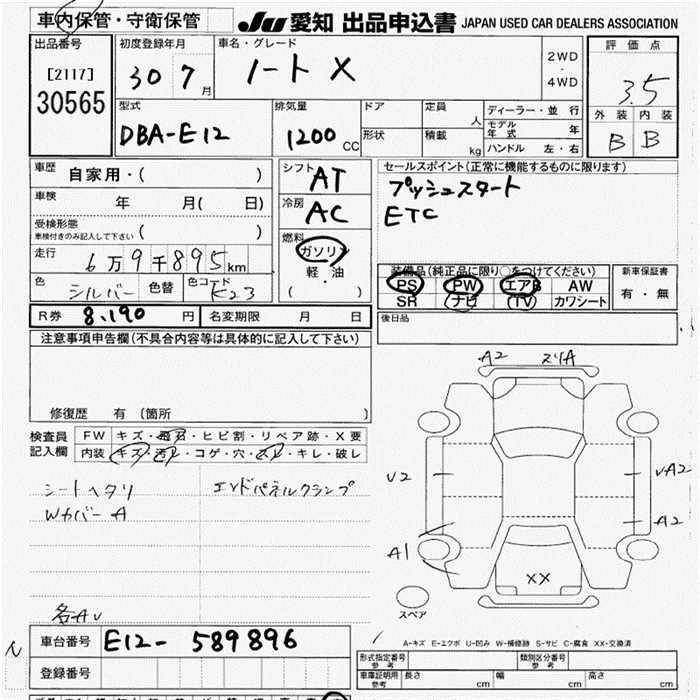 車内保管・守衛保管 JU 愛知 出品申込書 JAPAN USED CAR DEALERS ASSOCIATION
出品番号
[2117]
30565
初度登録年月
30 7 月
車名・グレード
ノート X
2WD
・
4WD
評価点
3.5
外装 内装
B B
型式
DBA-E12
排気量
1200 CC
ドア
形状
定員
人
積載
kg
ディーラー・並行
モデル年式 年
ハンドル 左・右
車歴
自家用・( )
車検 年 月( 日)
受検形態
車検付きのみ記入して下さい ( )
走行
6万9千895km
色 シルバー 色替 色コード K23
シフト AT
冷房 AC
燃料
ガソリン
軽・油
( )
セールスポイント(正常に機能するものに限ります)
プッシュスタート
ETC
装備品(純正品に限り○をつけてください)
PS PW エアB AW
SR ナビ (TV) カワシート
新車保証書
有・無
R券 8,190 円 名変期限 月 日
後日品
注意事項申告欄(不具合内容等は具体的に記入して下さい)
修復歴 有 (箇所 )
検査員
記入欄
FW キズ・飛石・ヒビ割・リペア跡・X要
内装 キズ・汚レ・コゲ・穴・スレ・キレ・破レ
シートヘタリ
Wカバー A
エンドパネルクランプ
各AU
A2 スリA
U2
UA2
A2
A1
XX
スペア
A-キズ E-エクボ U-凹み W-補修跡 S-サビ C-腐食 XX-交換済
車台番号 E12-589896
登録番号
形式指定番号
参考
類別区分番号
参考
車庫証明用
参考
長さ cm 幅 cm 高さ cm